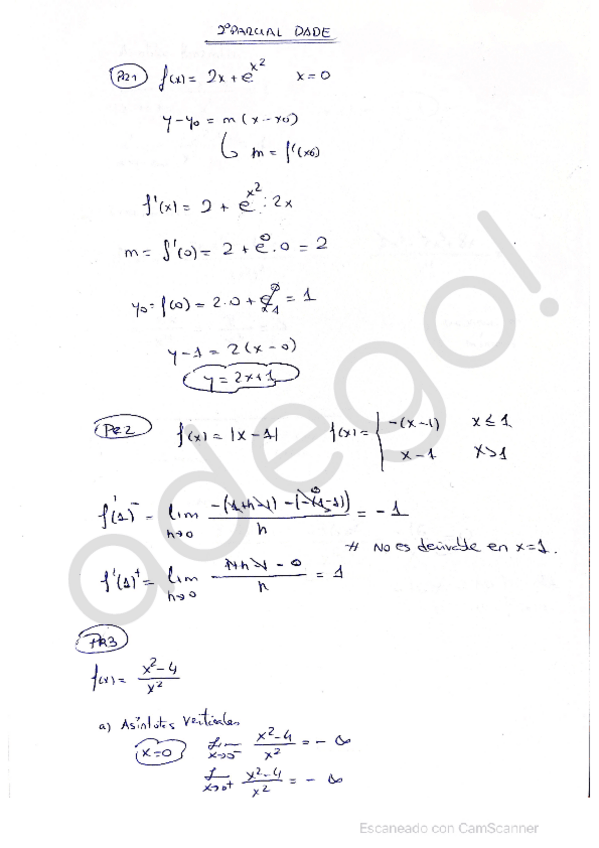 2º PARCIAL DADE
PR1 f(x) = 2x + e^x² x=0
y - y₀ = m (x - x₀)
↳ m = f'(x₀)
f'(x) = 2 + e^x² · 2x
m = f'(0) = 2 + e⁰ · 0 = 2
y₀ = f(0) = 2·0 + e⁰ = 1
y - 1 = 2(x - 0)
y = 2x + 1
PR2 f(x) = |x - 1| f(x) = { -(x-1) x ≤ 1
x - 1 x > 1
f'(1)⁻ = lim h→0 (-(1+h-1) - (-(1-1)))/h = -1
≠ No es derivable en x=1.
f'(1)⁺ = lim h→0 (1+h-1 - 0)/h = 1
PR3
f(x) = (x² - 4)/x²
a) Asíntotas Verticales
x=0 lim x→0⁻ (x²-4)/x² = -∞
lim x→0⁺ (x²-4)/x² = -∞
adego!
Escaneado con CamScanner